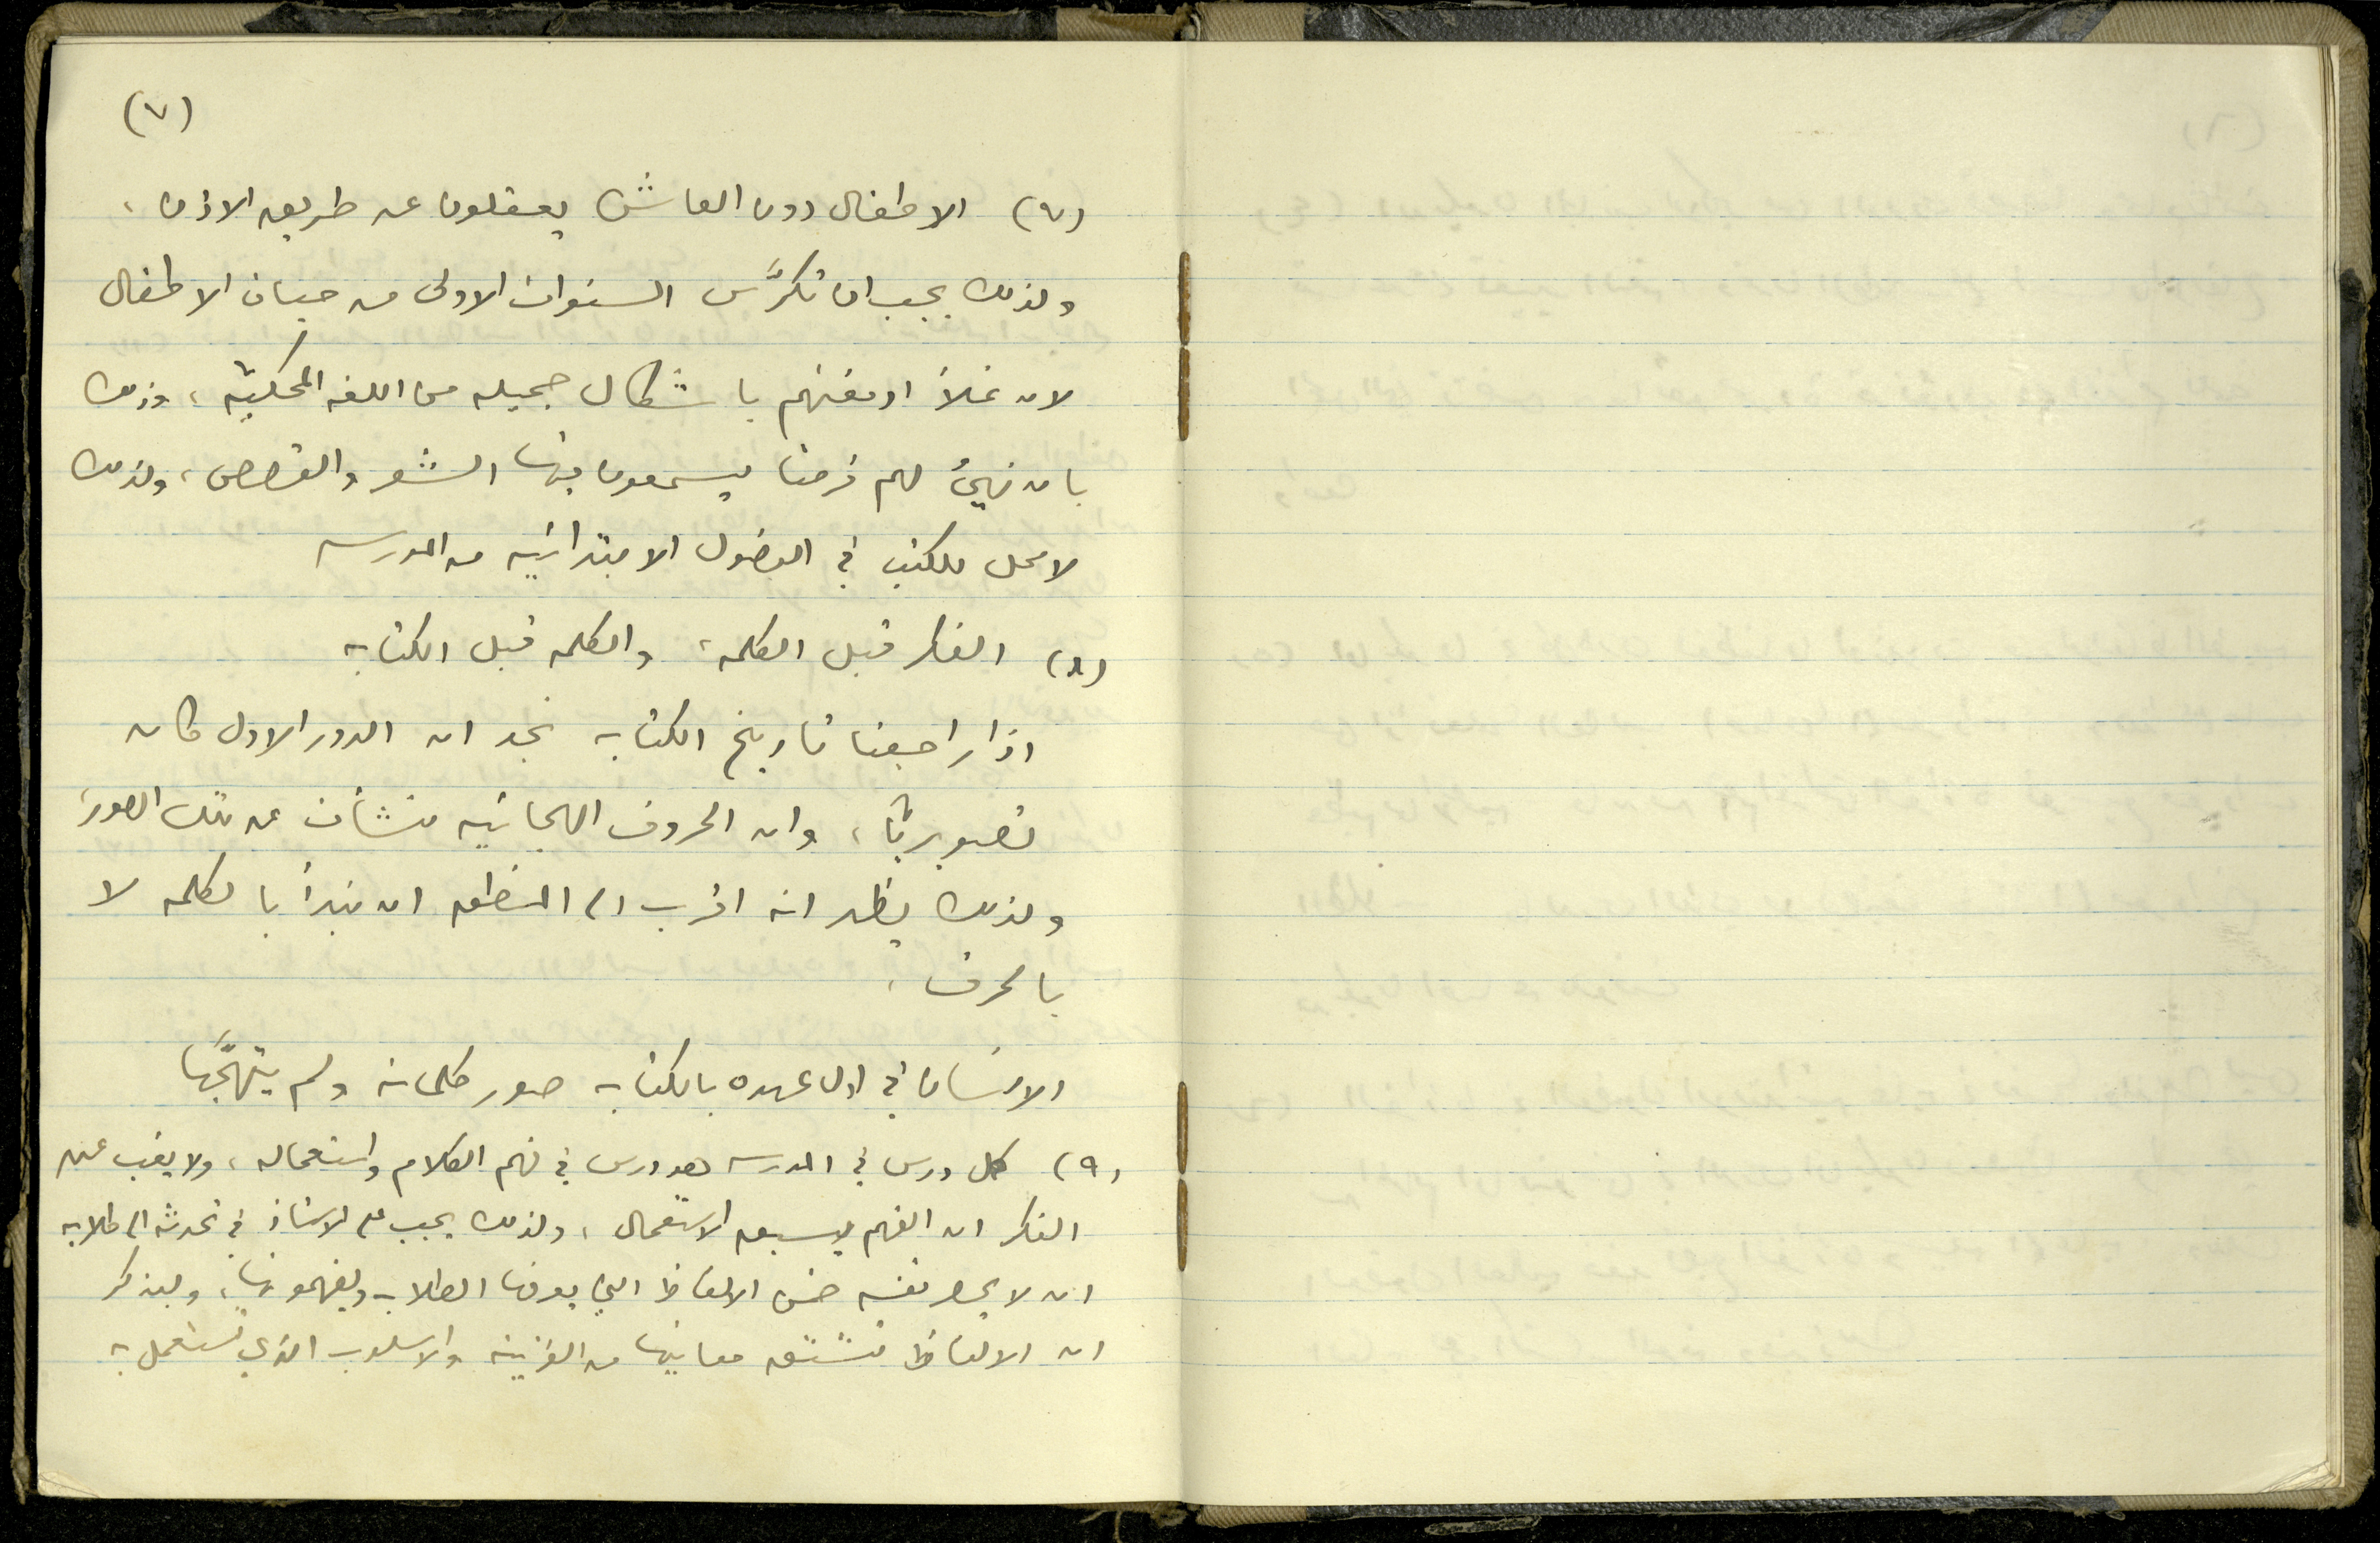 (٧)
(٧) الاطفال دون العاشرة يعقلون عن طريق الاذن ،
ولذلك يجب ان تكرَّس السنوات الاولى من حياة الاطفال
لان نملأ ادمغتهم باشكال جميله من اللغه المحكيَّه ، وذلك
بان نهيئ لهم فرصا يسمعون فيها الشعر والقصص ، ولذلك
لا محل للكتب في الفصول الابتدائيه من المدرسه
(٨) الفكر قبل الكلمه ، والكلمه قبل الكتابه
اذا راجعنا تاريخ الكتابه نجد ان الدور الاول كان
تصويريًّا ، وان الحروف الهجائيه نشأت عن تلك الصور
ولذلك يظهر انه اقرب الى المنطق ان نبدأ بالكلمه لا
بالحرف .
الانسان في اول عهده بالكتابه صور كلماته ولم يتهجَّها
(٩) كل درس في المدرسه هو درس في فهم الكلام واستعماله ، ولا يغب عن
الفكر ان الفهم يسبق الاستعمال ، ولذلك يجب على الاستاذ في تحدثه الى طلابه
ان لا يحصر نفسه ضمن الالفاظ التي يعرفها الطلاب ويفهمونها ، وليذكر
ان الالفاظ تشتق معانيها من القرينه والاسلوب الذي تستعمل به